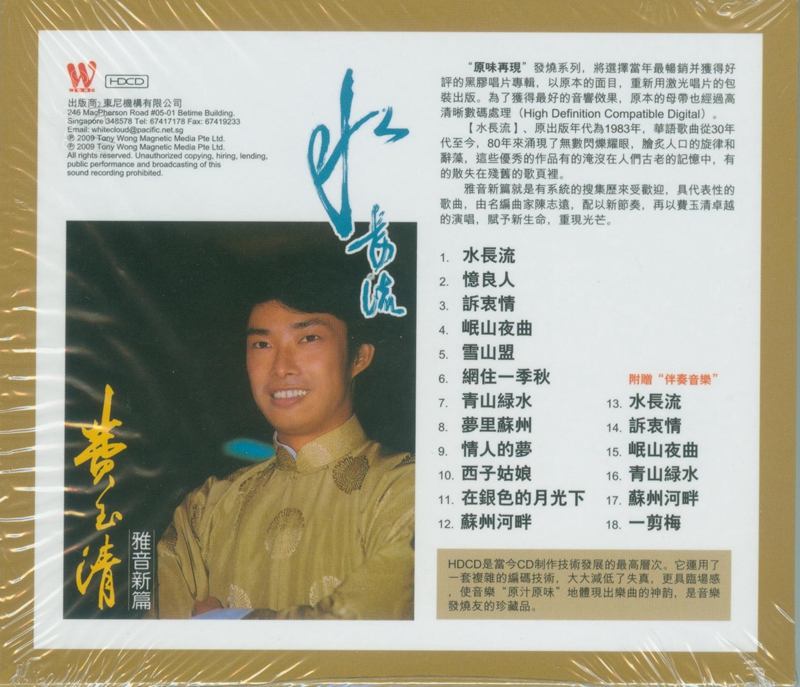 W
HDCD
出版商: 東尼機構有限公司
246 MacPherson Road #05-01 Betime Building.
Singapore 348578 Tel: 67417178 Fax: 67419233
Email: whitecloud@pacific.net.sg
℗ 2009 Tony Wong Magnetic Media Pte Ltd.
© 2009 Tony Wong Magnetic Media Pte Ltd.
All rights reserved. Unauthorized copying, hiring, lending,
public performance and broadcasting of this
sound recording prohibited.
水長流
費玉清
雅音新篇
“原味再現”發燒系列，將選擇當年最暢銷并獲得好
評的黑膠唱片專輯，以原本的面目，重新用激光唱片的包
裝出版。為了獲得最好的音響傚果，原本的母帶也經過高
清晰數碼處理（High Definition Compatible Digital）。
【水長流】、原出版年代為1983年，華語歌曲從30年
代至今，80年來涌現了無數閃爍耀眼，膾炙人口的旋律和
辭藻，這些優秀的作品有的淹沒在人們古老的記憶中，有
的散失在殘舊的歌頁裡。
雅音新篇就是有系統的搜集歷來受歡迎，具代表性的
歌曲，由名編曲家陳志遠，配以新節奏，再以費玉清卓越
的演唱，賦予新生命，重現光芒。
1. 水長流
2. 憶良人
3. 訴衷情
4. 岷山夜曲
5. 雪山盟
6. 網住一季秋
7. 青山綠水
8. 夢里蘇州
9. 情人的夢
10. 西子姑娘
11. 在銀色的月光下
12. 蘇州河畔
附贈“伴奏音樂”
13. 水長流
14. 訴衷情
15. 岷山夜曲
16. 青山綠水
17. 蘇州河畔
18. 一剪梅
HDCD是當今CD制作技術發展的最高層次。它運用了
一套複雜的編碼技術，大大減低了失真，更具臨場感
，使音樂“原汁原味”地體現出樂曲的神韵，是音樂
發燒友的珍藏品。